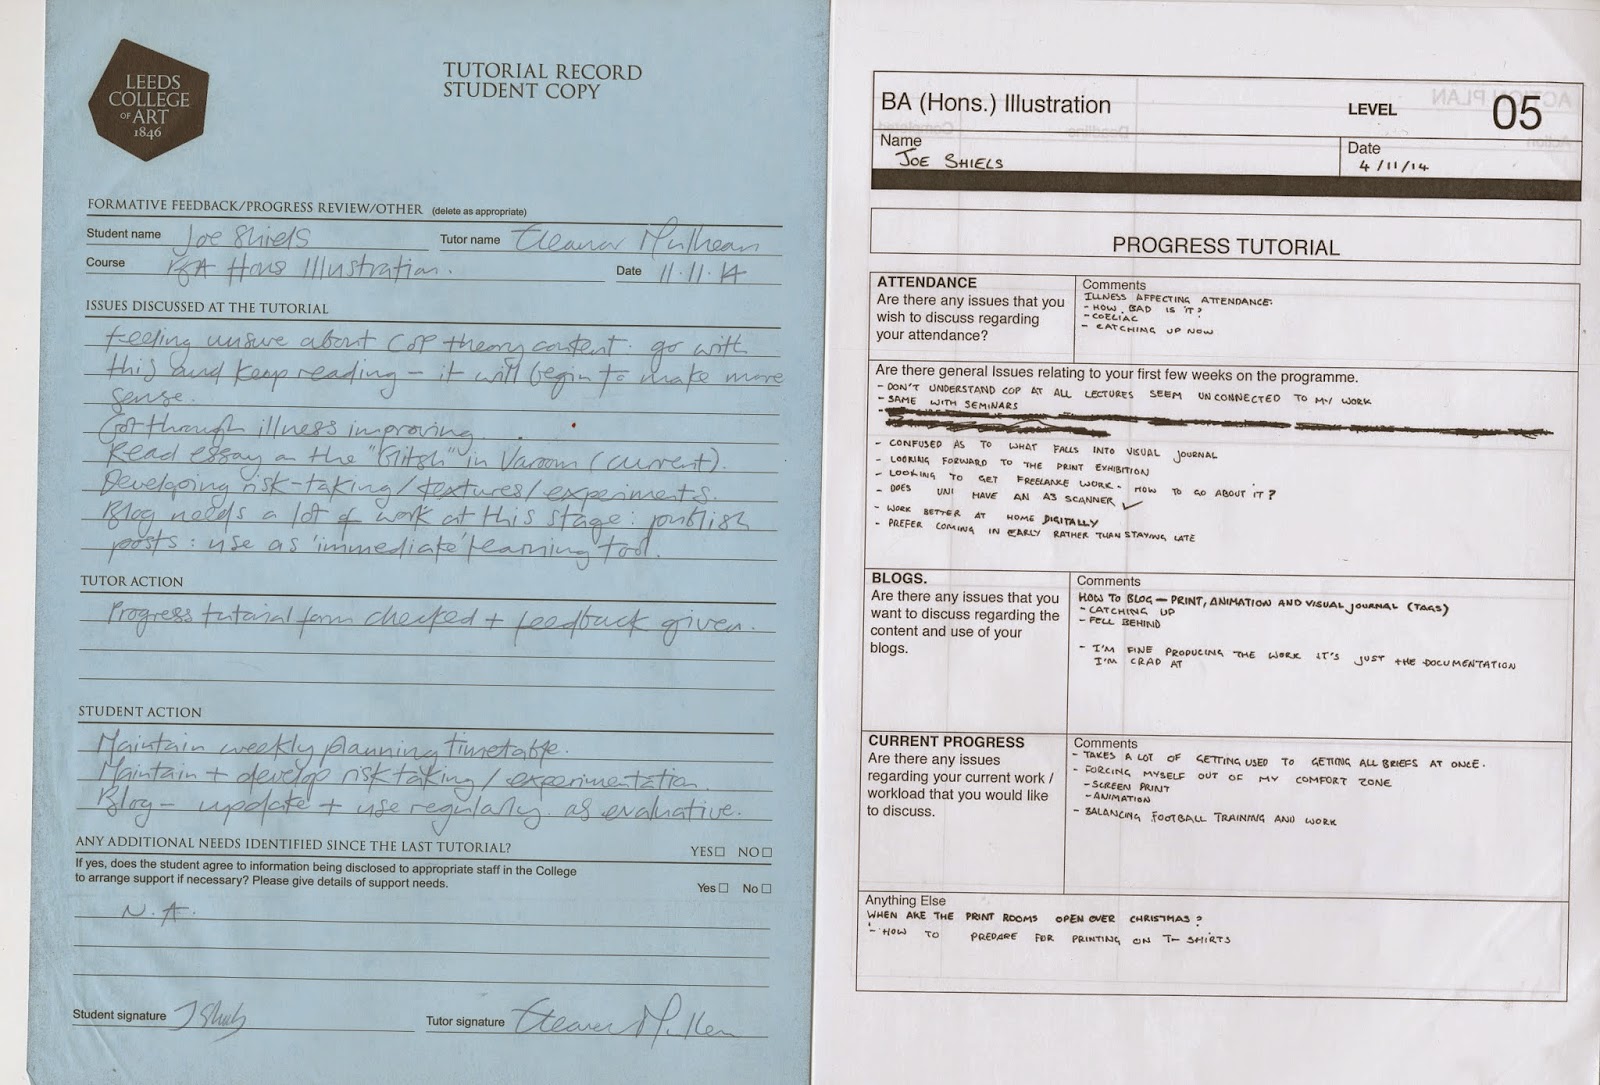 LEEDS
COLLEGE
OF ART
1846
TUTORIAL RECORD
STUDENT COPY
FORMATIVE FEEDBACK/PROGRESS REVIEW/OTHER (delete as appropriate)
Student name Joe Shiels Tutor name Eleanor Mulhearn
Course BA Hons Illustration. Date 11.11.14
ISSUES DISCUSSED AT THE TUTORIAL
Feeling unsure about CoP theory content. go with
this and keep reading – it will begin to make more
sense.
Got through illness improving.
Read essay on the "Glitch" in Varoom (current).
Developing risk-taking/textures/experiments.
Blog needs a lot of work at this stage: publish
posts: use as 'immediate' learning tool.
TUTOR ACTION
Progress tutorial form checked + feedback given.
STUDENT ACTION
Maintain weekly planning timetable.
Maintain + develop risk taking / experimentation.
Blog – update + use regularly. as evaluative.
ANY ADDITIONAL NEEDS IDENTIFIED SINCE THE LAST TUTORIAL? YES☐ NO☐
If yes, does the student agree to information being disclosed to appropriate staff in the College
to arrange support if necessary? Please give details of support needs. Yes☐ No☐
N.A.
Student signature J Shiels Tutor signature Eleanor Mulhearn
BA (Hons.) Illustration LEVEL 05
Name
JOE SHIELS
Date
4/11/14
PROGRESS TUTORIAL
ATTENDANCE
Are there any issues that you
wish to discuss regarding
your attendance?
Comments
ILLNESS AFFECTING ATTENDANCE:
- HOW BAD IS IT?
- COELIAC
- CATCHING UP NOW
Are there general Issues relating to your first few weeks on the programme.
- DON'T UNDERSTAND COP AT ALL LECTURES SEEM UNCONNECTED TO MY WORK
- SAME WITH SEMINARS
- CONFUSED AS TO WHAT FALLS INTO VISUAL JOURNAL
- LOOKING FORWARD TO THE PRINT EXHIBITION
- LOOKING TO GET FREELANCE WORK - HOW TO GO ABOUT IT?
- DOES UNI HAVE AN A3 SCANNER ✓
- WORK BETTER AT HOME DIGITALLY
- PREFER COMING IN EARLY RATHER THAN STAYING LATE
BLOGS.
Are there any issues that you
want to discuss regarding the
content and use of your
blogs.
Comments
HOW TO BLOG – PRINT, ANIMATION AND VISUAL JOURNAL (TAGS)
- CATCHING UP
- FELL BEHIND
- I'M FINE PRODUCING THE WORK IT'S JUST THE DOCUMENTATION
I'M CRAP AT
CURRENT PROGRESS
Are there any issues
regarding your current work /
workload that you would like
to discuss.
Comments
- TAKES A LOT OF GETTING USED TO GETTING ALL BRIEFS AT ONCE.
- FORCING MYSELF OUT OF MY COMFORT ZONE
- SCREEN PRINT
- ANIMATION
- BALANCING FOOTBALL TRAINING AND WORK
Anything Else
WHEN ARE THE PRINT ROOMS OPEN OVER CHRISTMAS?
- HOW TO PREPARE FOR PRINTING ON T-SHIRTS